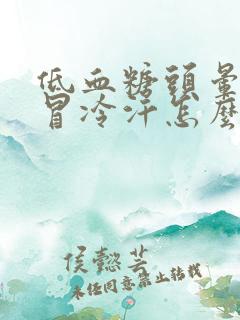 低血糖頭暈
冒冷汗怎麼
侯懿芸
未経同意禁止転載